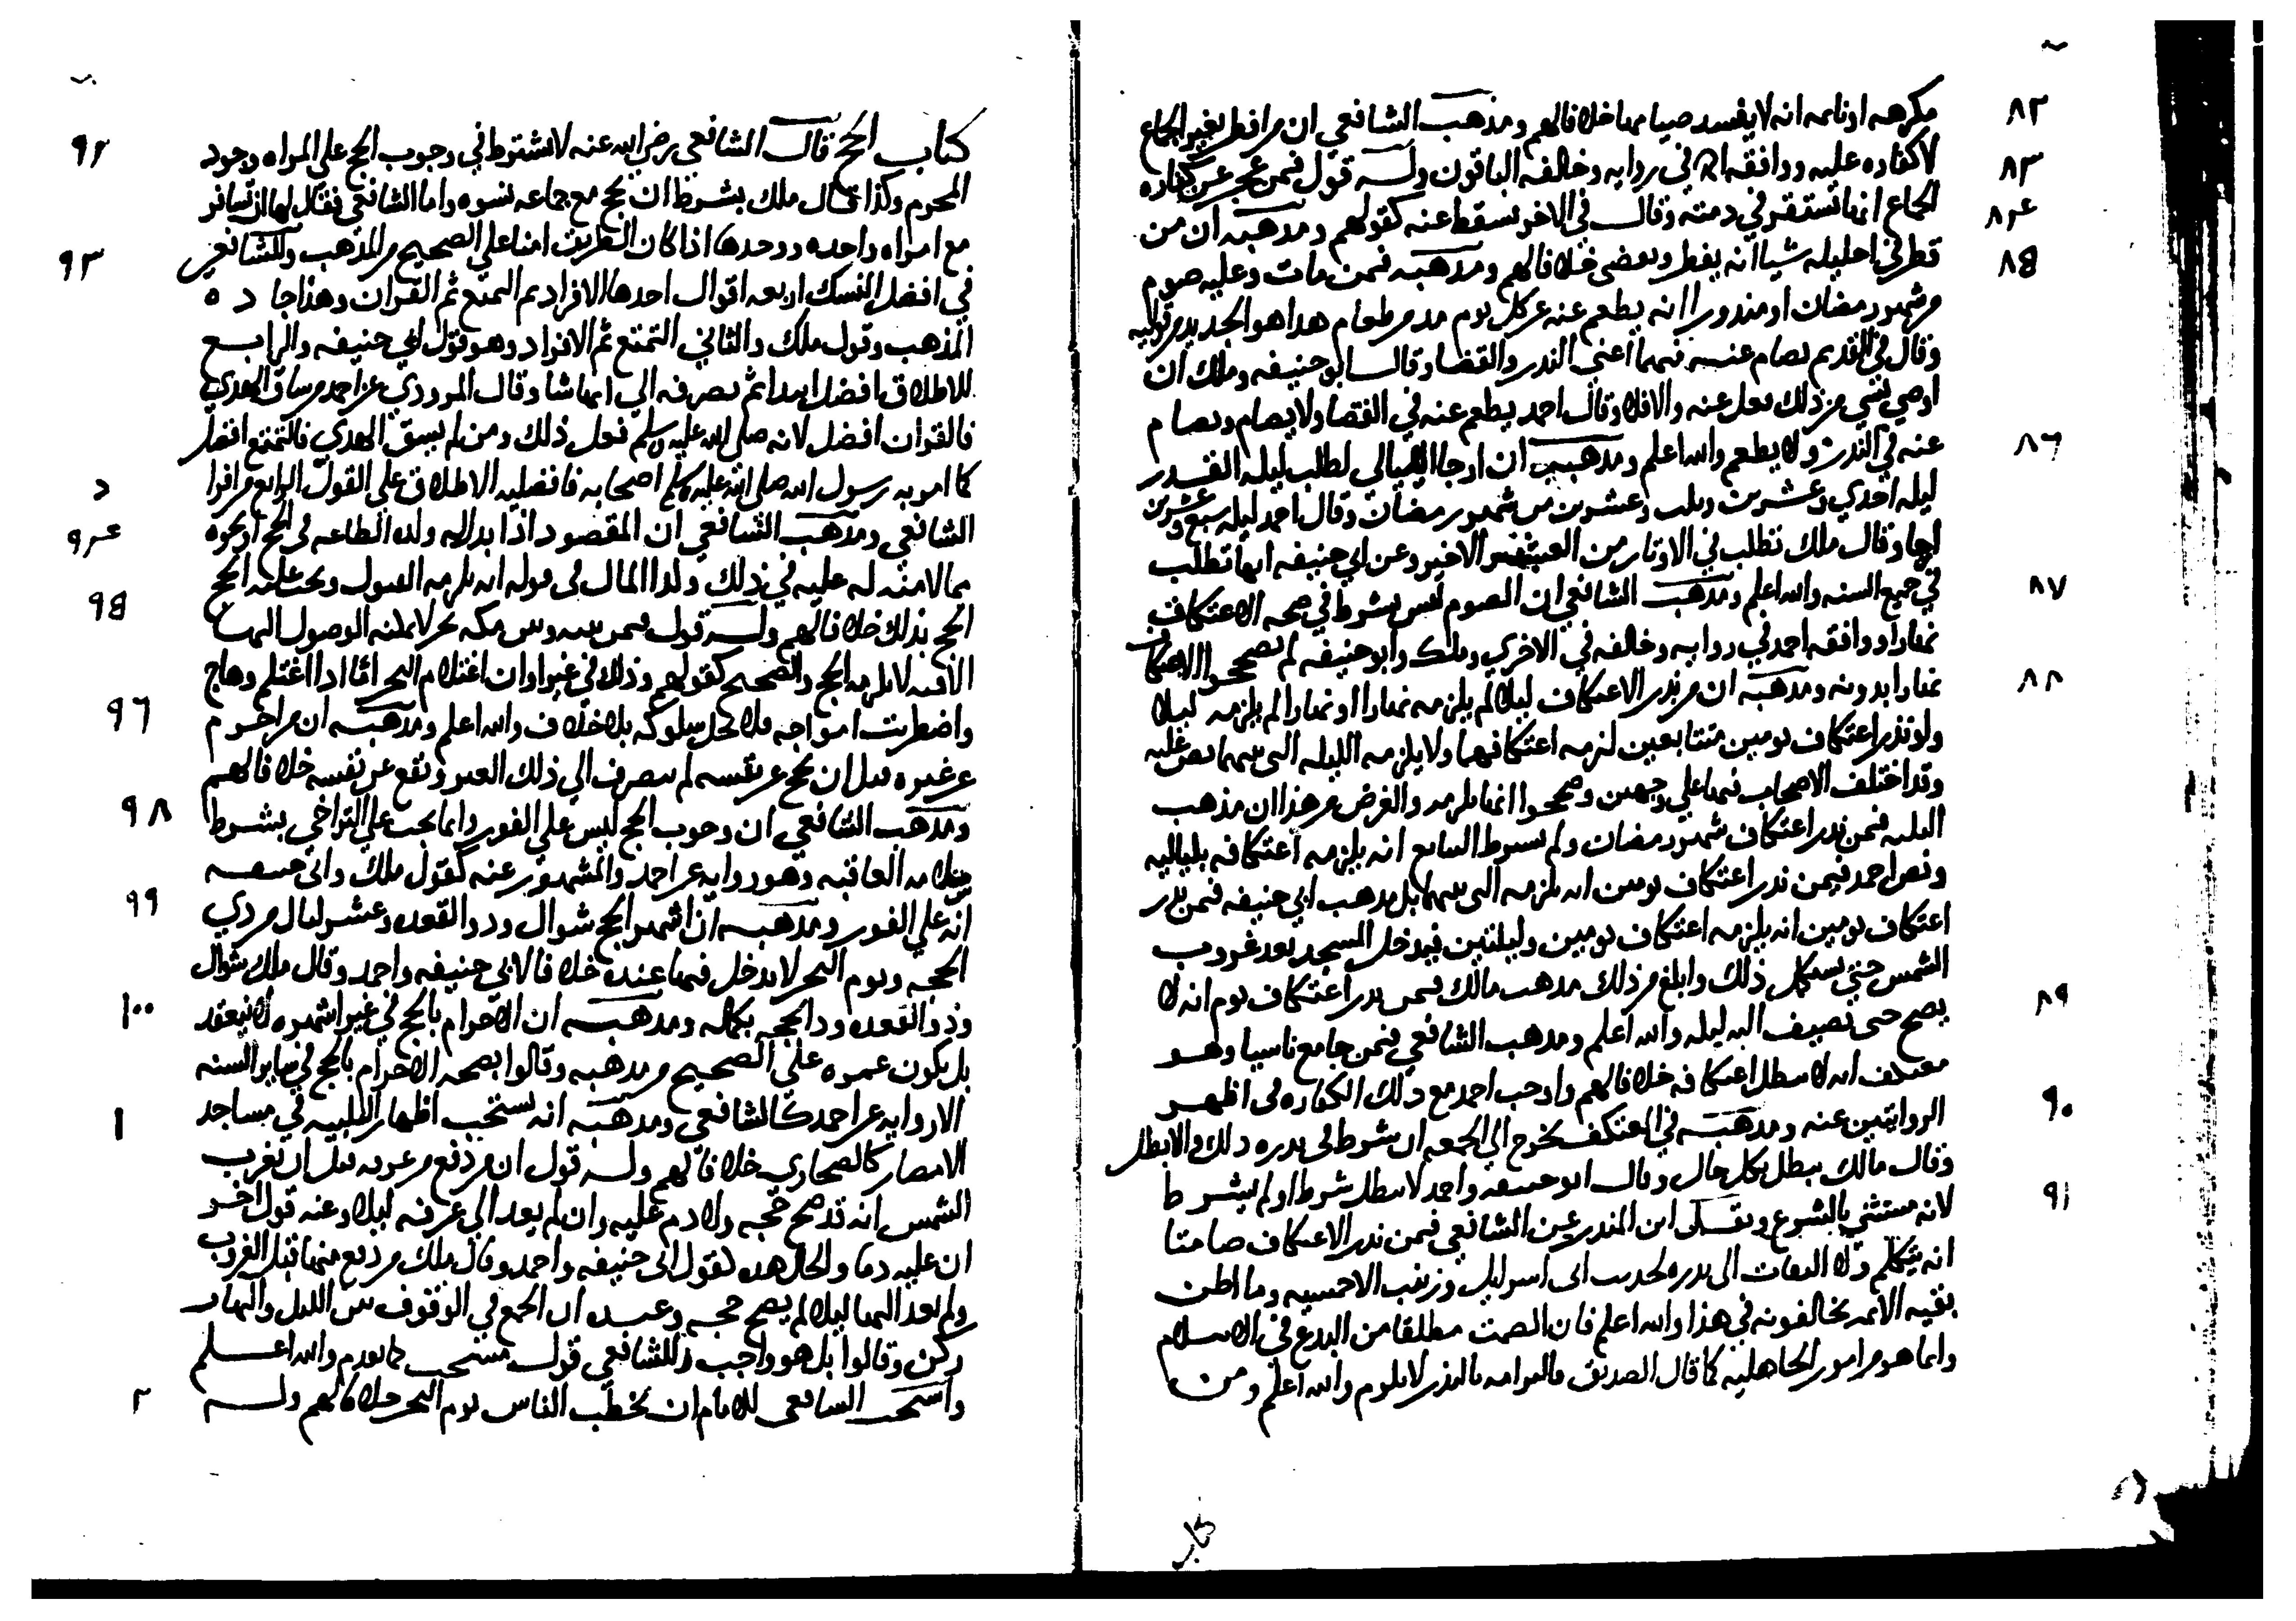 مكرهه او نائمه انه لا يفسد صيامهما خلافا لهم ومذهب الشافعي ان من افطر بغير الجماع
٨٢
لا كفاره عليه ووافقه في روايه وخالفه الباقون وله قول فيمن عجز عن كفاره
٨٣
الجماع انها تستقر في ذمته وقال في الاخر تسقط عنه كقولهم ومذهبه ان من
٨٤
قطر في احليله شيا انه يفطر ويقضي خلافا لهم ومذهبه فيمن مات وعليه صوم
٨٥
من شهر رمضان او منذورا انه يطعم عنه عن كل يوم مد من طعام هذا هو الجديد من قوليه
وقال في القديم يصام عنه فيهما اعني النذر والقضا وقال ابو حنيفه وملك ان
اوصي بشي من ذلك فعل عنه والا فلا وقال احمد يطعم عنه في القضا ولا يصام ويصام
عنه في النذر ولا يطعم والله اعلم ومذهبه ان ارجا الليالي لطلب ليله القدر
٨٦
ليله احدي وعشرين وثلث وعشرين من شهر رمضان وقال احمد ليله سبع وعشرين
ارجا وقال ملك تطلب في الاوتار من العشر الاخير وعن ابي حنيفه انها تطلب
في جميع السنه والله اعلم ومذهب الشافعي ان الصوم ليس بشرط في صحه الاعتكاف
٨٧
نهارا ووافقه احمد في روايه وخالفه في الاخري وملك وابو حنيفه لم يصححوا الاعتكاف
نهارا بدونه ومذهبه ان من نذر الاعتكاف ليلا لم يلزمه نهارا او نهارا لم يلزمه ليلا
٨٨
ولو نذر اعتكاف يومين متتابعين لزمه اعتكافهما ولا يلزمه الليله التي بينهما نص عليه
وقد اختلف الاصحاب فيها علي وجهين وصححوا انها تلزمه والغرض من هذا ان مذهب
الثلثه فيمن نذر اعتكاف شهر رمضان ولم يشرط التتابع انه يلزمه اعتكافه بلياليه
ونص احمد فيمن نذر اعتكاف يومين انه يلزمه التي بينهما بل مذهب ابي حنيفه فيمن نذر
اعتكاف يومين انه يلزمه اعتكاف يومين وليلتين فيدخل المسجد بعد غروب
الشمس حتي يستكمل ذلك وابلغ من ذلك مذهب مالك فيمن نذر اعتكاف يوم انه لا
يصح حتي يضيف اليه ليله والله اعلم ومذهب الشافعي فيمن جامع ناسيا وهو
٨٩
معتكف انه لا يبطل اعتكافه خلافا لهم واوجب احمد مع ذلك الكفاره في اظهر
الروايتين عنه ومذهبه في المعتكف يخرج الي الجمعه ان شرط في نذره ذلك والا بطل
٩٠
وقال مالك يبطل بكل حال وقال ابو حنيفه واحمد لا يبطل شرط او لم يشرط
لانه مستثني بالشرع ونقل ابن المنذر عن الشافعي فيمن نذر الاعتكاف صامتا
٩١
انه يتكلم ولا التفات الي نذره لحديث ابي اسرائيل وزينب الاحمسيه وما اظن
بقيه الائمه يخالفونه في هذا والله اعلم فان الصمت مطلقا من البدع في الاسلام
وانما هو من امور الجاهليه كما قال الصديق فالتزامه بالنذر لا يلزم والله اعلم ومن
كتاب
كتاب الحج قال الشافعي رضي الله عنه لا يشترط في وجوب الحج علي المراه وجود
٩٢
المحرم وكذا قال ملك بشرط ان تحج مع جماعه نسوه واما الشافعي فقال لها ان تسافر
مع امراه واحده ووحدها اذا كان الطريق امنا علي الصحيح من المذهب وللشافعي
٩٣
في افضل النسك اربعه اقوال احدها الافراد ثم التمتع ثم القران وهذا جاده
المذهب وقول ملك والثاني التمتع ثم الافراد وهو قول ابي حنيفه والرابع
للاطلاق افضل ابدا ثم يصرفه الي ايها شا وقال المروذي عن احمد من ساق الهدي
فالقران افضل لانه صلي الله عليه وسلم فعل ذلك ومن لم يسق الهدي فالتمتع افضل
كما امر به رسول الله صلي الله عليه وسلم اصحابه فافضليه الاطلاق علي القول الرابع من افرا
د
الشافعي ومذهب الشافعي ان المقصود اذا بدل له ولده الطاعه في الحج او نحوه
٩٤
مما لا منه له عليه في ذلك وكذا المال في قوله انه يلزمه القبول ويجب عليه الحج
الحج بذلك خلافا لهم وله قول فيمن بينه وبين مكه بحر لا يمكنه الوصول اليها
٩٥
الا فيه لا يلزمه الحج والصحيح كقولهم وذلك في غير اوان اغتلام البحر اما اذا اغتلم وهاج
واضطربت امواجه فلا يحل سلوكه بلا خلاف والله اعلم ومذهبه ان من احرم
٩٦
عن غيره قبل ان يحج عن نفسه لم ينصرف الي ذلك الغير ويقع عن نفسه خلافا لهم
ومذهب الشافعي ان وجوب الحج ليس علي الفور وانما يجب علي التراخي بشرط
٩٨
سلامه العاقبه وهو روايه عن احمد والمشهور عنه كقول ملك وابي حنيفه
انه علي الفور ومذهبه ان اشهر الحج شوال وذو القعده وعشر ليال من ذي
٩٩
الحجه ويوم النحر لا يدخل فيها عنده خلافا لابي حنيفه واحمد وقال ملك شوال
وذو القعده وذا الحجه بكماله ومذهبه ان الاحرام بالحج في غير اشهره لا ينعقد
١٠٠
بل يكون عمره علي الصحيح من مذهبه وقالوا بصحه الاحرام بالحج في ساير السنه
الا روايه عن احمد كالشافعي ومذهبه انه يستحب اظهار التلبيه في مساجد
١
الامصار كالصحاري خلافا لهم وله قول ان من دفع من عرفه قبل ان تغرب
الشمس انه قد صح حجه ولا دم عليه وان لم يعد الي عرفه ليلا وعنه قول اخر
ان عليه دما والحال هذه كقول ابي حنيفه واحمد وقال ملك من دفع منها قبل الغروب
ولم يعد اليها ليلا لم يصح حجه وعنده ان الجمع في الوقوف بين الليل والنهار
ركن وقالوا بل هو واجب وللشافعي قول مستحب كما تقدم والله اعلم
واستحب الشافعي للامام ان يخطب الناس يوم النحر خلافا لهم وله
٢